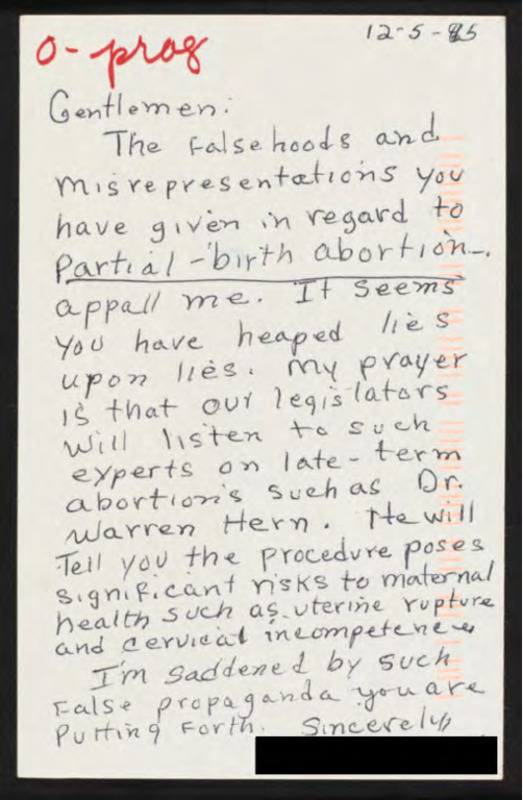 12-5-95
O-prog
Gentlemen:
The falsehoods and
misrepresentations you
have given in regard to
Partial-birth abortion-.
appall me. It seems
you have heaped lies
upon lies. My prayer
is that our legislators
will listen to such
experts on late-term
abortions such as Dr.
Warren Hern. He will
Tell you the procedure poses
significant risks to maternal
health such as uterine rupture
and cervical incompetence
I'm saddened by such
False propaganda you are
Putting Forth. Sincerely